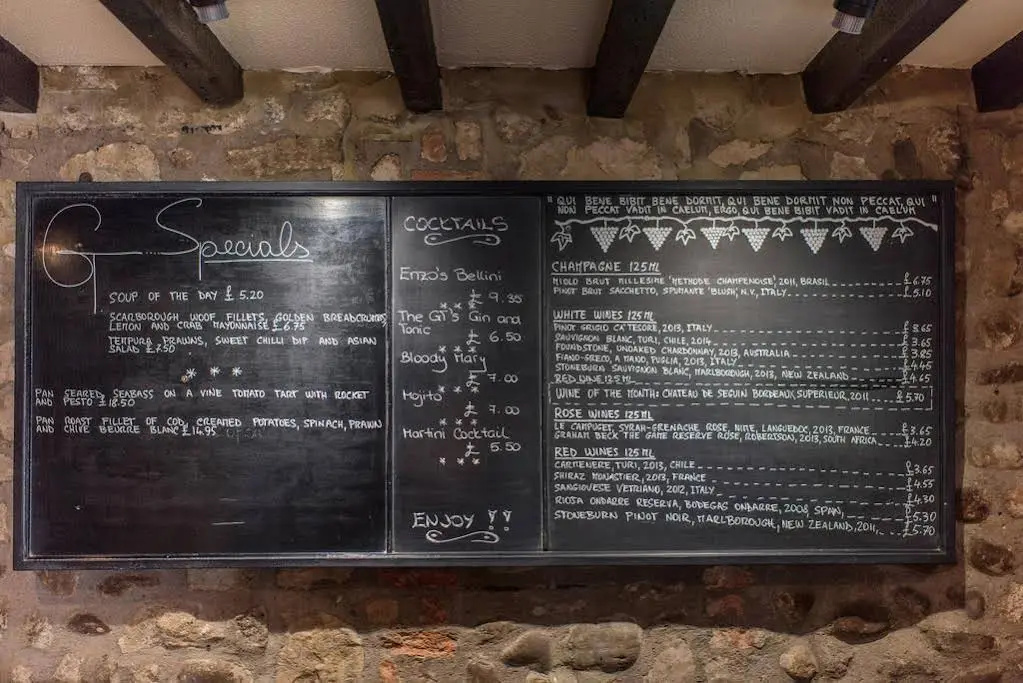 GT Specials
SOUP OF THE DAY £ 5.20
SCARBOROUGH WOOF FILLETS, GOLDEN BREADCRUMBS
LEMON AND CRAB MAYONNAISE £6.75
TEMPURA PRAWNS, SWEET CHILLI DIP AND ASIAN
SALAD £7.50
PAN SEARED SEABASS ON A VINE TOMATO TART WITH ROCKET
AND PESTO £18.50
PAN ROAST FILLET OF COD, CREAMED POTATOES, SPINACH, PRAWN
AND CHIVE BEURRE BLANC £14.95
COCKTAILS
Enzo's Bellini
£ 9.35
The GT's Gin and
Tonic
£ 6.50
Bloody Mary
£ 7.00
Mojito
£ 7.00
Martini Cocktail
£ 5.50
ENJOY !!
"QUI BENE BIBIT BENE DORMIT, QUI BENE DORMIT NON PECCAT, QUI
NON PECCAT VADIT IN CAELUM, ERGO, QUI BENE BIBIT VADIT IN CAELUM"
CHAMPAGNE 125ML
MIOLO BRUT MILLESIME 'METHODE CHAMPENOISE', 2011, BRASIL £6.75
PINOT BRUT SACCHETTO, SPUMANTE 'BLUSH', N.V, ITALY £5.10
WHITE WINES 125ML
PINOT GRIGIO CA'TESORE, 2013, ITALY £3.65
SAUVIGNON BLANC, TURI, CHILE, 2014 £3.65
FOUNDSTONE, UNOAKED CHARDONNAY, 2013, AUSTRALIA £3.85
FIANO-GRECO, A MANO, PUGLIA, 2013, ITALY £4.45
STONEBURN SAUVIGNON BLANC, MARLBOROUGH, 2013, NEW ZEALAND £4.65
RED WINE 125ML
WINE OF THE MONTH: CHATEAU DE SEGUIN BORDEAUX SUPERIEUR, 2011 £5.70
ROSE WINES 125ML
LE CAMPUGET, SYRAH-GRENACHE ROSE, NIME, LANGUEDOC, 2013, FRANCE £3.65
GRAHAM BECK THE GAME RESERVE ROSE, ROBERTSON, 2013, SOUTH AFRICA £4.20
RED WINES 125ML
CARMENERE, TURI, 2013, CHILE £3.65
SHIRAZ MONASTIER, 2013, FRANCE £4.55
SANGIOVESE VETRIANO, 2012, ITALY £4.30
RIOJA ONDARRE RESERVA, BODEGAS ONDARRE, 2008, SPAIN, £5.30
STONEBURN PINOT NOIR, MARLBOROUGH, NEW ZEALAND, 2011, £5.70